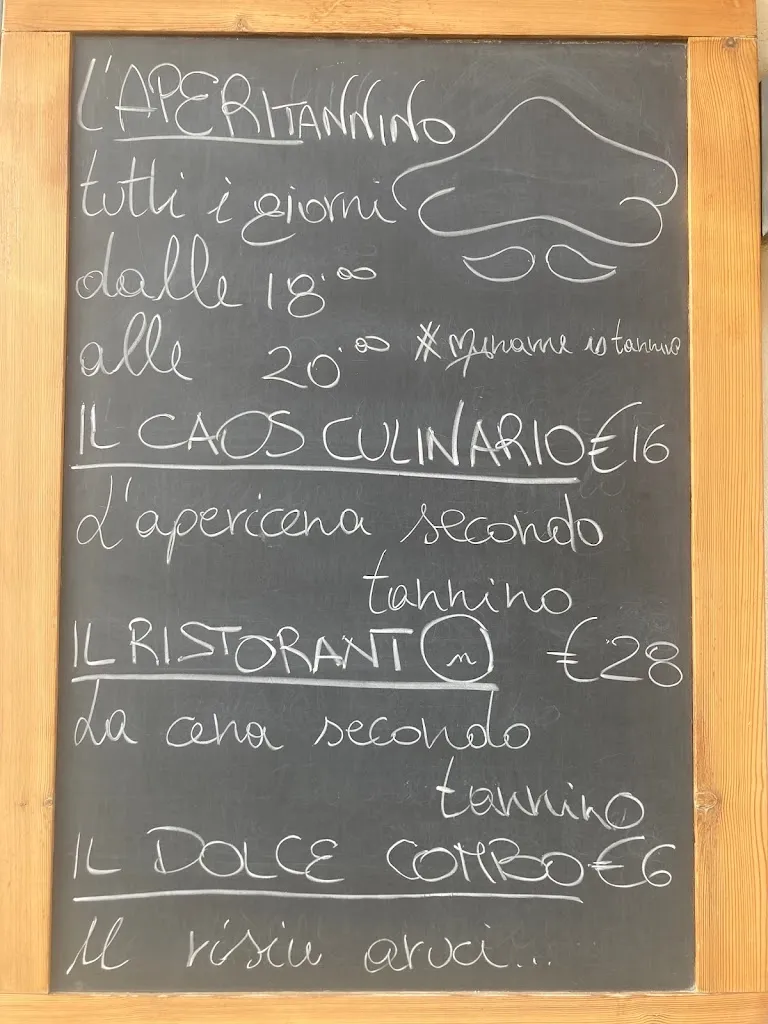 L'APERITANNINO
tutti i giorni
dalle 18.00
alle 20.00 #mynameistannino
IL CAOS CULINARIO €16
L'apericena secondo
tannino
IL RISTORANT n €28
La cena secondo
tannino
IL DOLCE COMBO €6
U risiu aruci...